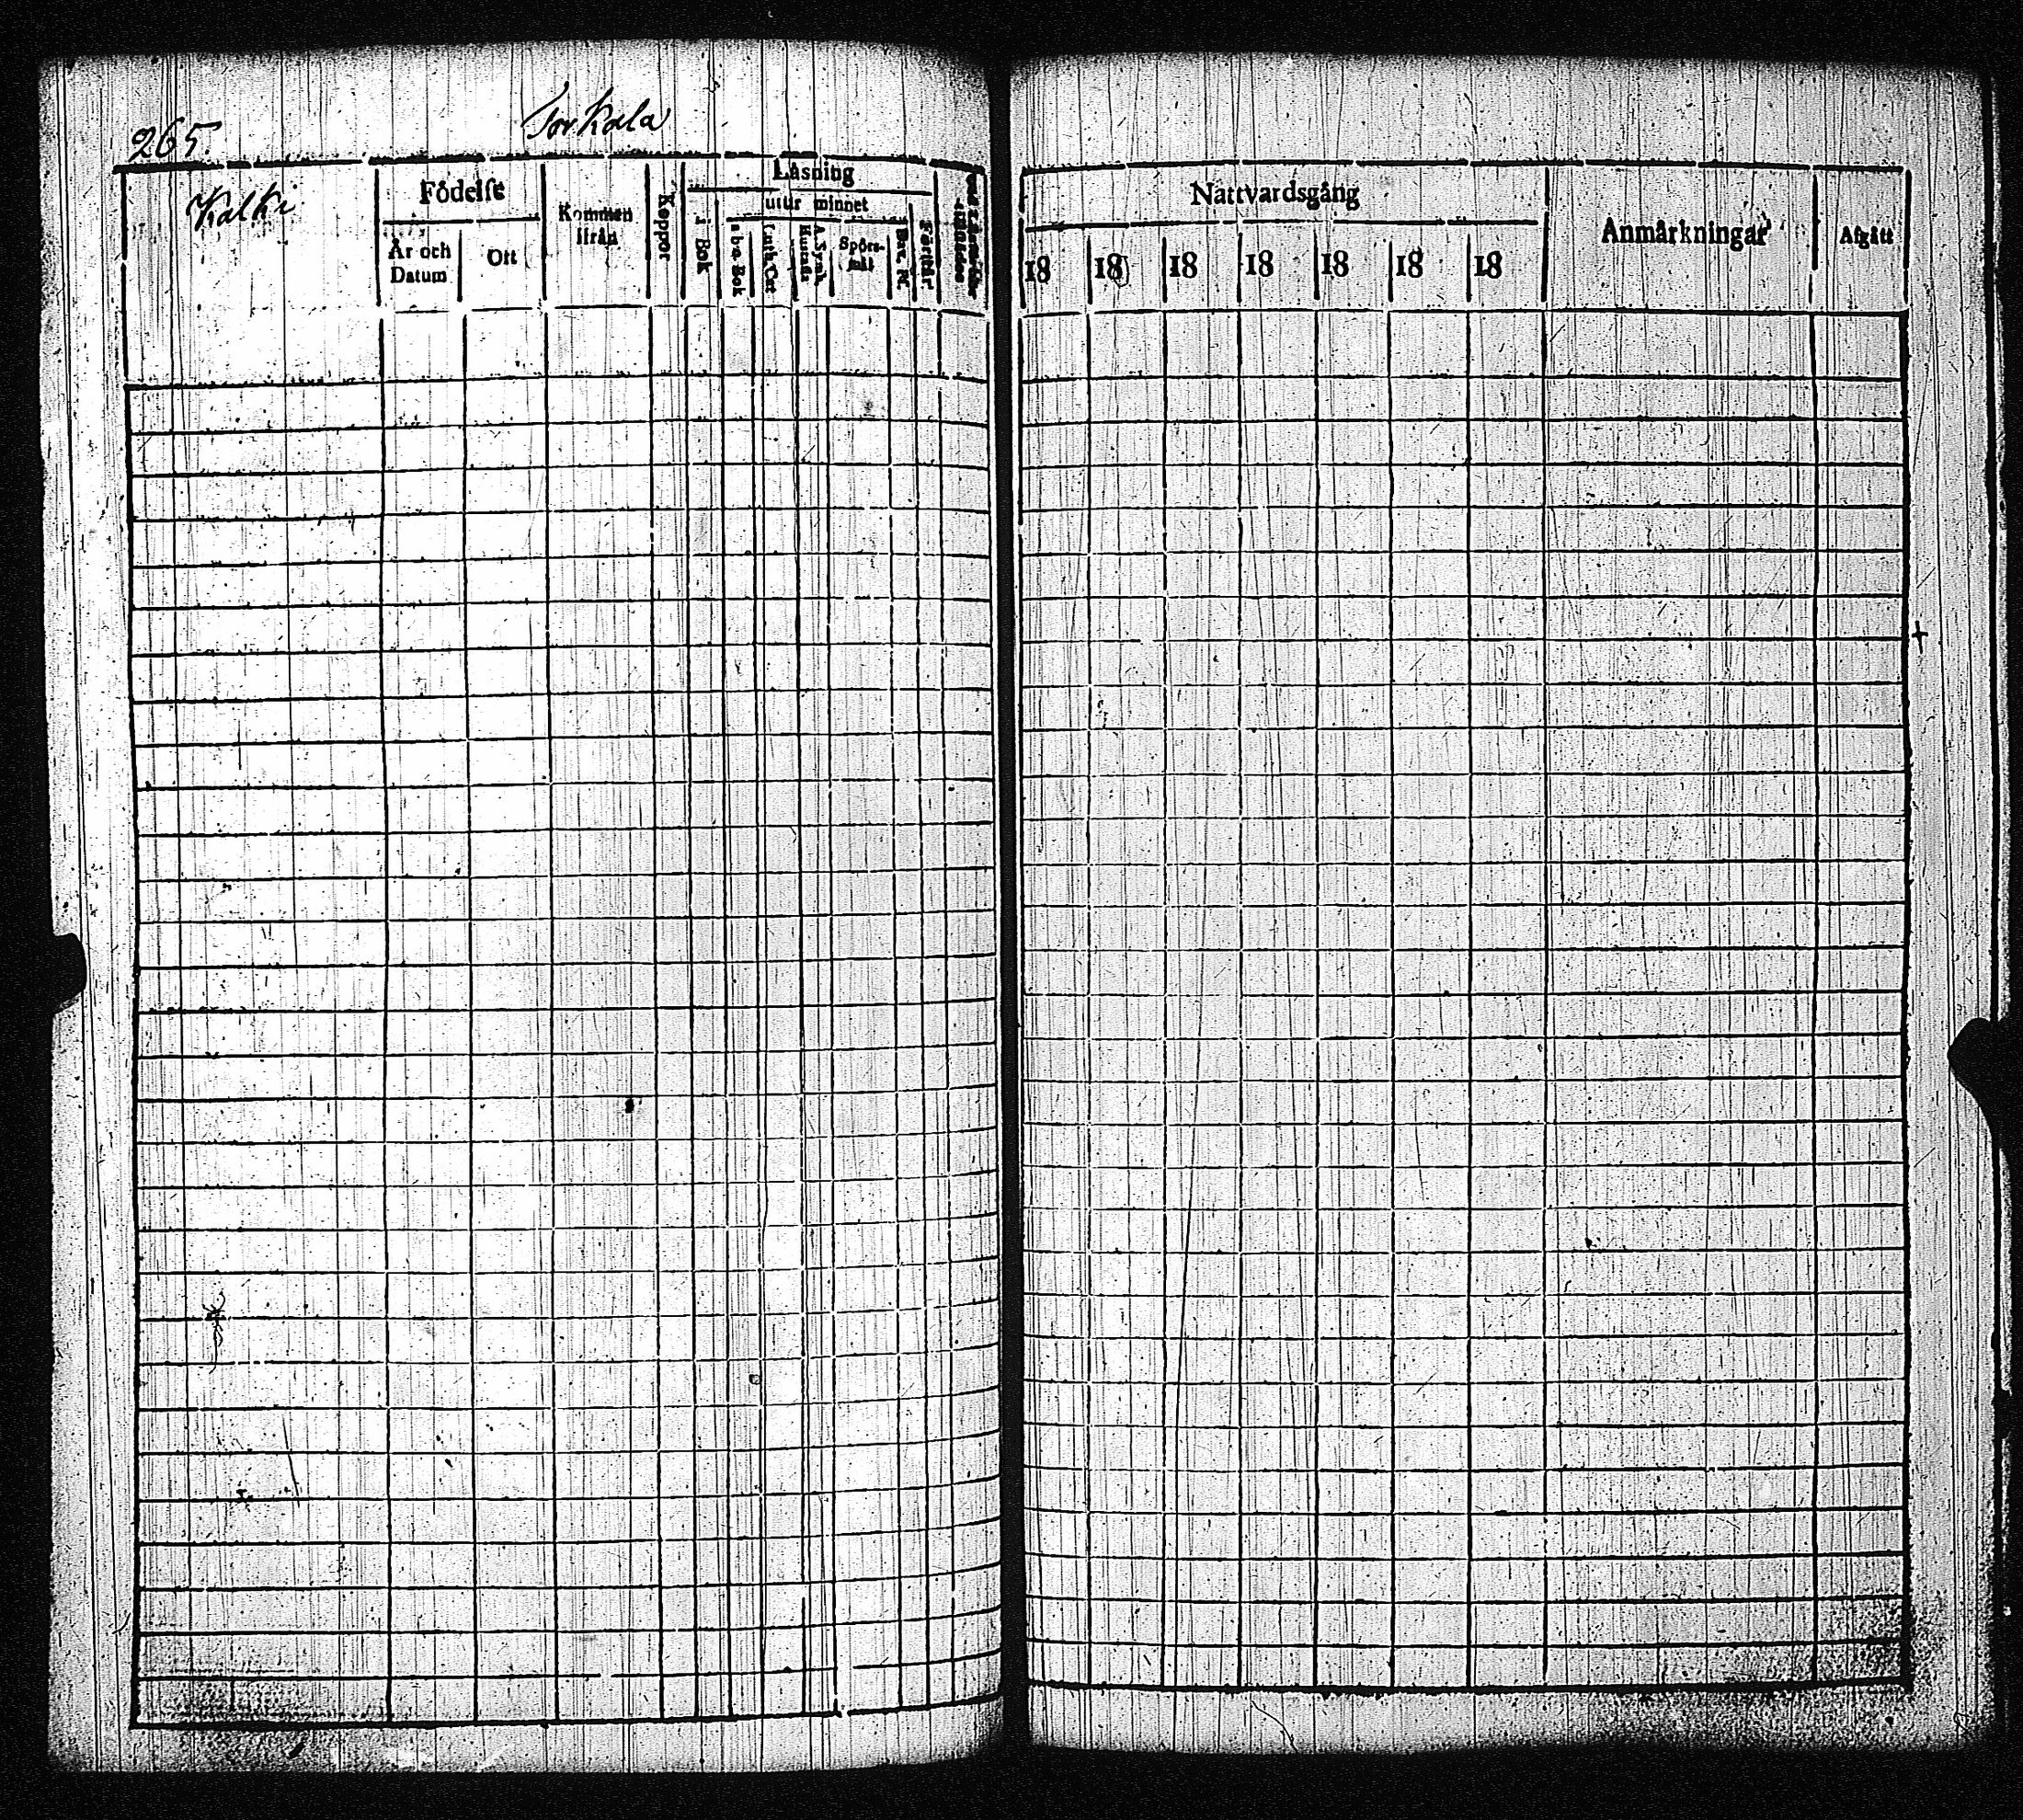 265.
Torkala
Kalki
Födelse
År och Datum
Ort
Kommen ifrån
Koppor
Läsning
i Bok
utur minnet
a b c Bok
Luth. Cat.
A. Symb. Hustafla
Spörsmål
Förstår
Nattvardsgång
18 18 18 18 18 18 18
Anmärkningar
Afgått